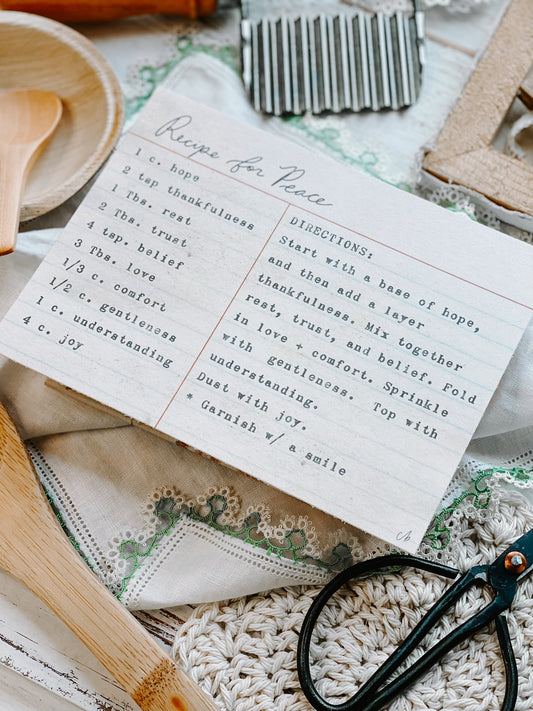 Recipe for Peace
1 c. hope
2 tsp thankfulness
1 Tbs. rest
2 Tbs. trust
4 tsp. belief
3 Tbs. love
1/3 c. comfort
1/2 c. gentleness
1 c. understanding
4 c. joy
DIRECTIONS:
Start with a base of hope,
and then add a layer
thankfulness. Mix together
rest, trust, and belief. Fold
in love + comfort. Sprinkle
with gentleness. Top with
understanding.
Dust with joy.
* Garnish w/ a smile